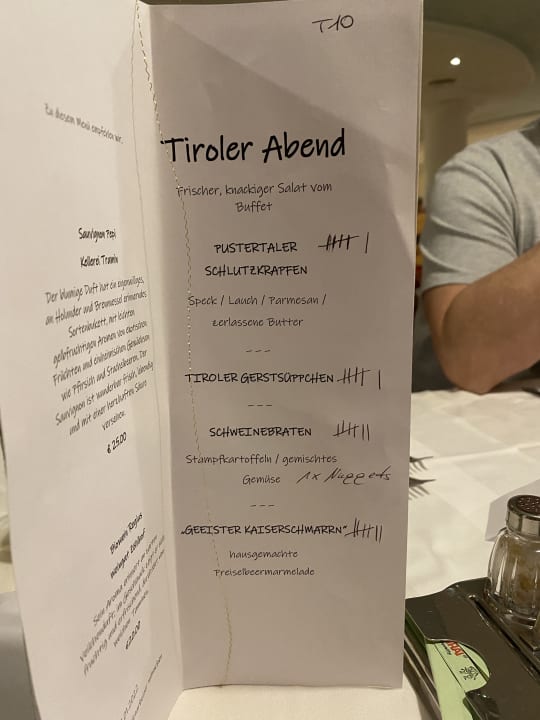 Zu diesem Menü empfehlen wir:
Sauvignon Pepi
Kellerei Tramin
Der blumige Duft hat ein eigenwilliges,
an Holunder und Brennnessel erinnerndes
Sortenbukett, mit leichten
gelbfruchtigen Aromen von exotischen
Früchten und einheimischen Gewächsen
wie Pfirsich und Stachelbeeren. Der
Sauvignon ist wunderbar frisch, lebendig
und mit einer herzhaften Säure
versehen.
€ 25,00
T10
Tiroler Abend
Frischer, knackiger Salat vom
Buffet
PUSTERTALER
SCHLUTZKRAPFEN
Speck / Lauch / Parmesan /
zerlassene Butter
---
TIROLER GERSTSÜPPCHEN
---
SCHWEINEBRATEN
Stampfkartoffeln / gemischtes
Gemüse 1x Nuggets
---
„GEEISTER KAISERSCHMARRN"
hausgemachte
Preiselbeermarmelade